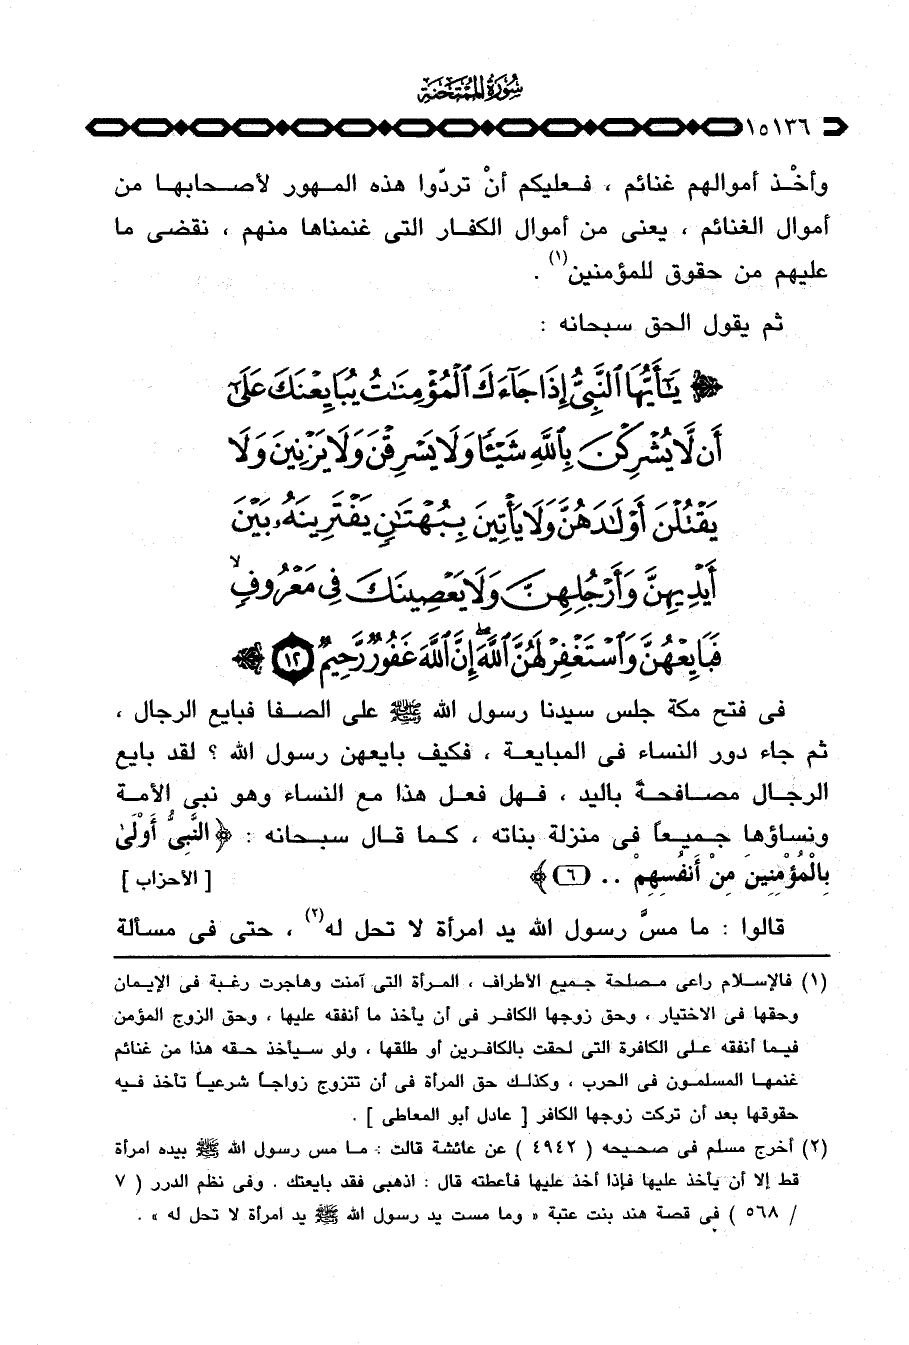 سُورَةُ المُمْتَحنَةِ
١٥١٣٦
وأخْـذ أموالهم غنائم ، فـعليكم أنْ تردّوا هذه المـهور لأصـحابهـا من
أموال الغنائم ، يعنى من أموال الكفـار التى غنمناها منهم ، نقضى ما
عليهم من حقوق للمؤمنين(١) .
ثم يقول الحق سبحانه :
﴿ يَٰٓأَيُّهَا ٱلنَّبِيُّ إِذَا جَآءَكَ ٱلْمُؤْمِنَٰتُ يُبَايِعْنَكَ عَلَىٰٓ
أَن لَّا يُشْرِكْنَ بِٱللَّهِ شَيْـًٔا وَلَا يَسْرِقْنَ وَلَا يَزْنِينَ وَلَا
يَقْتُلْنَ أَوْلَٰدَهُنَّ وَلَا يَأْتِينَ بِبُهْتَٰنٍ يَفْتَرِينَهُۥ بَيْنَ
أَيْدِيهِنَّ وَأَرْجُلِهِنَّ وَلَا يَعْصِينَكَ فِى مَعْرُوفٍ ۙ
فَبَايِعْهُنَّ وَٱسْتَغْفِرْ لَهُنَّ ٱللَّهَ ۖ إِنَّ ٱللَّهَ غَفُورٌ رَّحِيمٌ ١٢ ﴾
فى فتح مكة جلس سيدنا رسول الله ﷺ على الصـفا فبايع الرجال ،
ثم جاء دور النساء فى المبايعـة ، فكيف بايعهن رسول الله ؟ لقد بايع
الرجـال مصـافحـةً باليد ، فـهل فعـل هذا مع النساء وهو نبى الأمـة
ونساؤها جـميعـاً فى منزلة بناته ، كـما قـال سبـحانه : ﴿ النَّبِىُّ أَوْلَىٰ
بِالْمُؤْمِنِينَ مِنْ أَنفُسِهِمْ .. (٦)﴾ [ الأحزاب ]
قالوا : ما مسَّ رسول الله يد امرأة لا تحل له(٢) ، حتى فى مسألة
(١) فالإسـلام راعى مـصلحة جـميع الأطراف ، المـرأة التى آمنت وهاجرت رغبـة فى الإيمان
وحقها فى الاختيار ، وحق زوجها الكافـر فى أن يأخذ ما أنفقه عليها ، وحق الزوج المؤمن
فيـما أنفقه عـلى الكافرة التى لحقت بالكافرين أو طلقها ، ولو سـيأخذ حقـه هذا من غنائم
غنمهـا المسلمـون فى الحرب ، وكذلـك حق المرأة فى أن تتزوج زواجـاً شرعيـاً تأخذ فيـه
حقوقها بعد أن تركت زوجها الكافر [ عادل أبو المعاطى ] .
(٢) أخرج مسلم فى صحـيحه ( ٤٩٤٢ ) عن عائشة قالت : مـا مس رسول الله ﷺ بيده امرأة
قط إلا أن يأخذ عليها فإذا أخذ عليها فأعطته قال : اذهبى فقد بايعتك . وفى نظم الدرر ( ٧
/ ٥٦٨ ) فى قصة هند بنت عتبة « وما مست يد رسول الله ﷺ يد امرأة لا تحل له » .